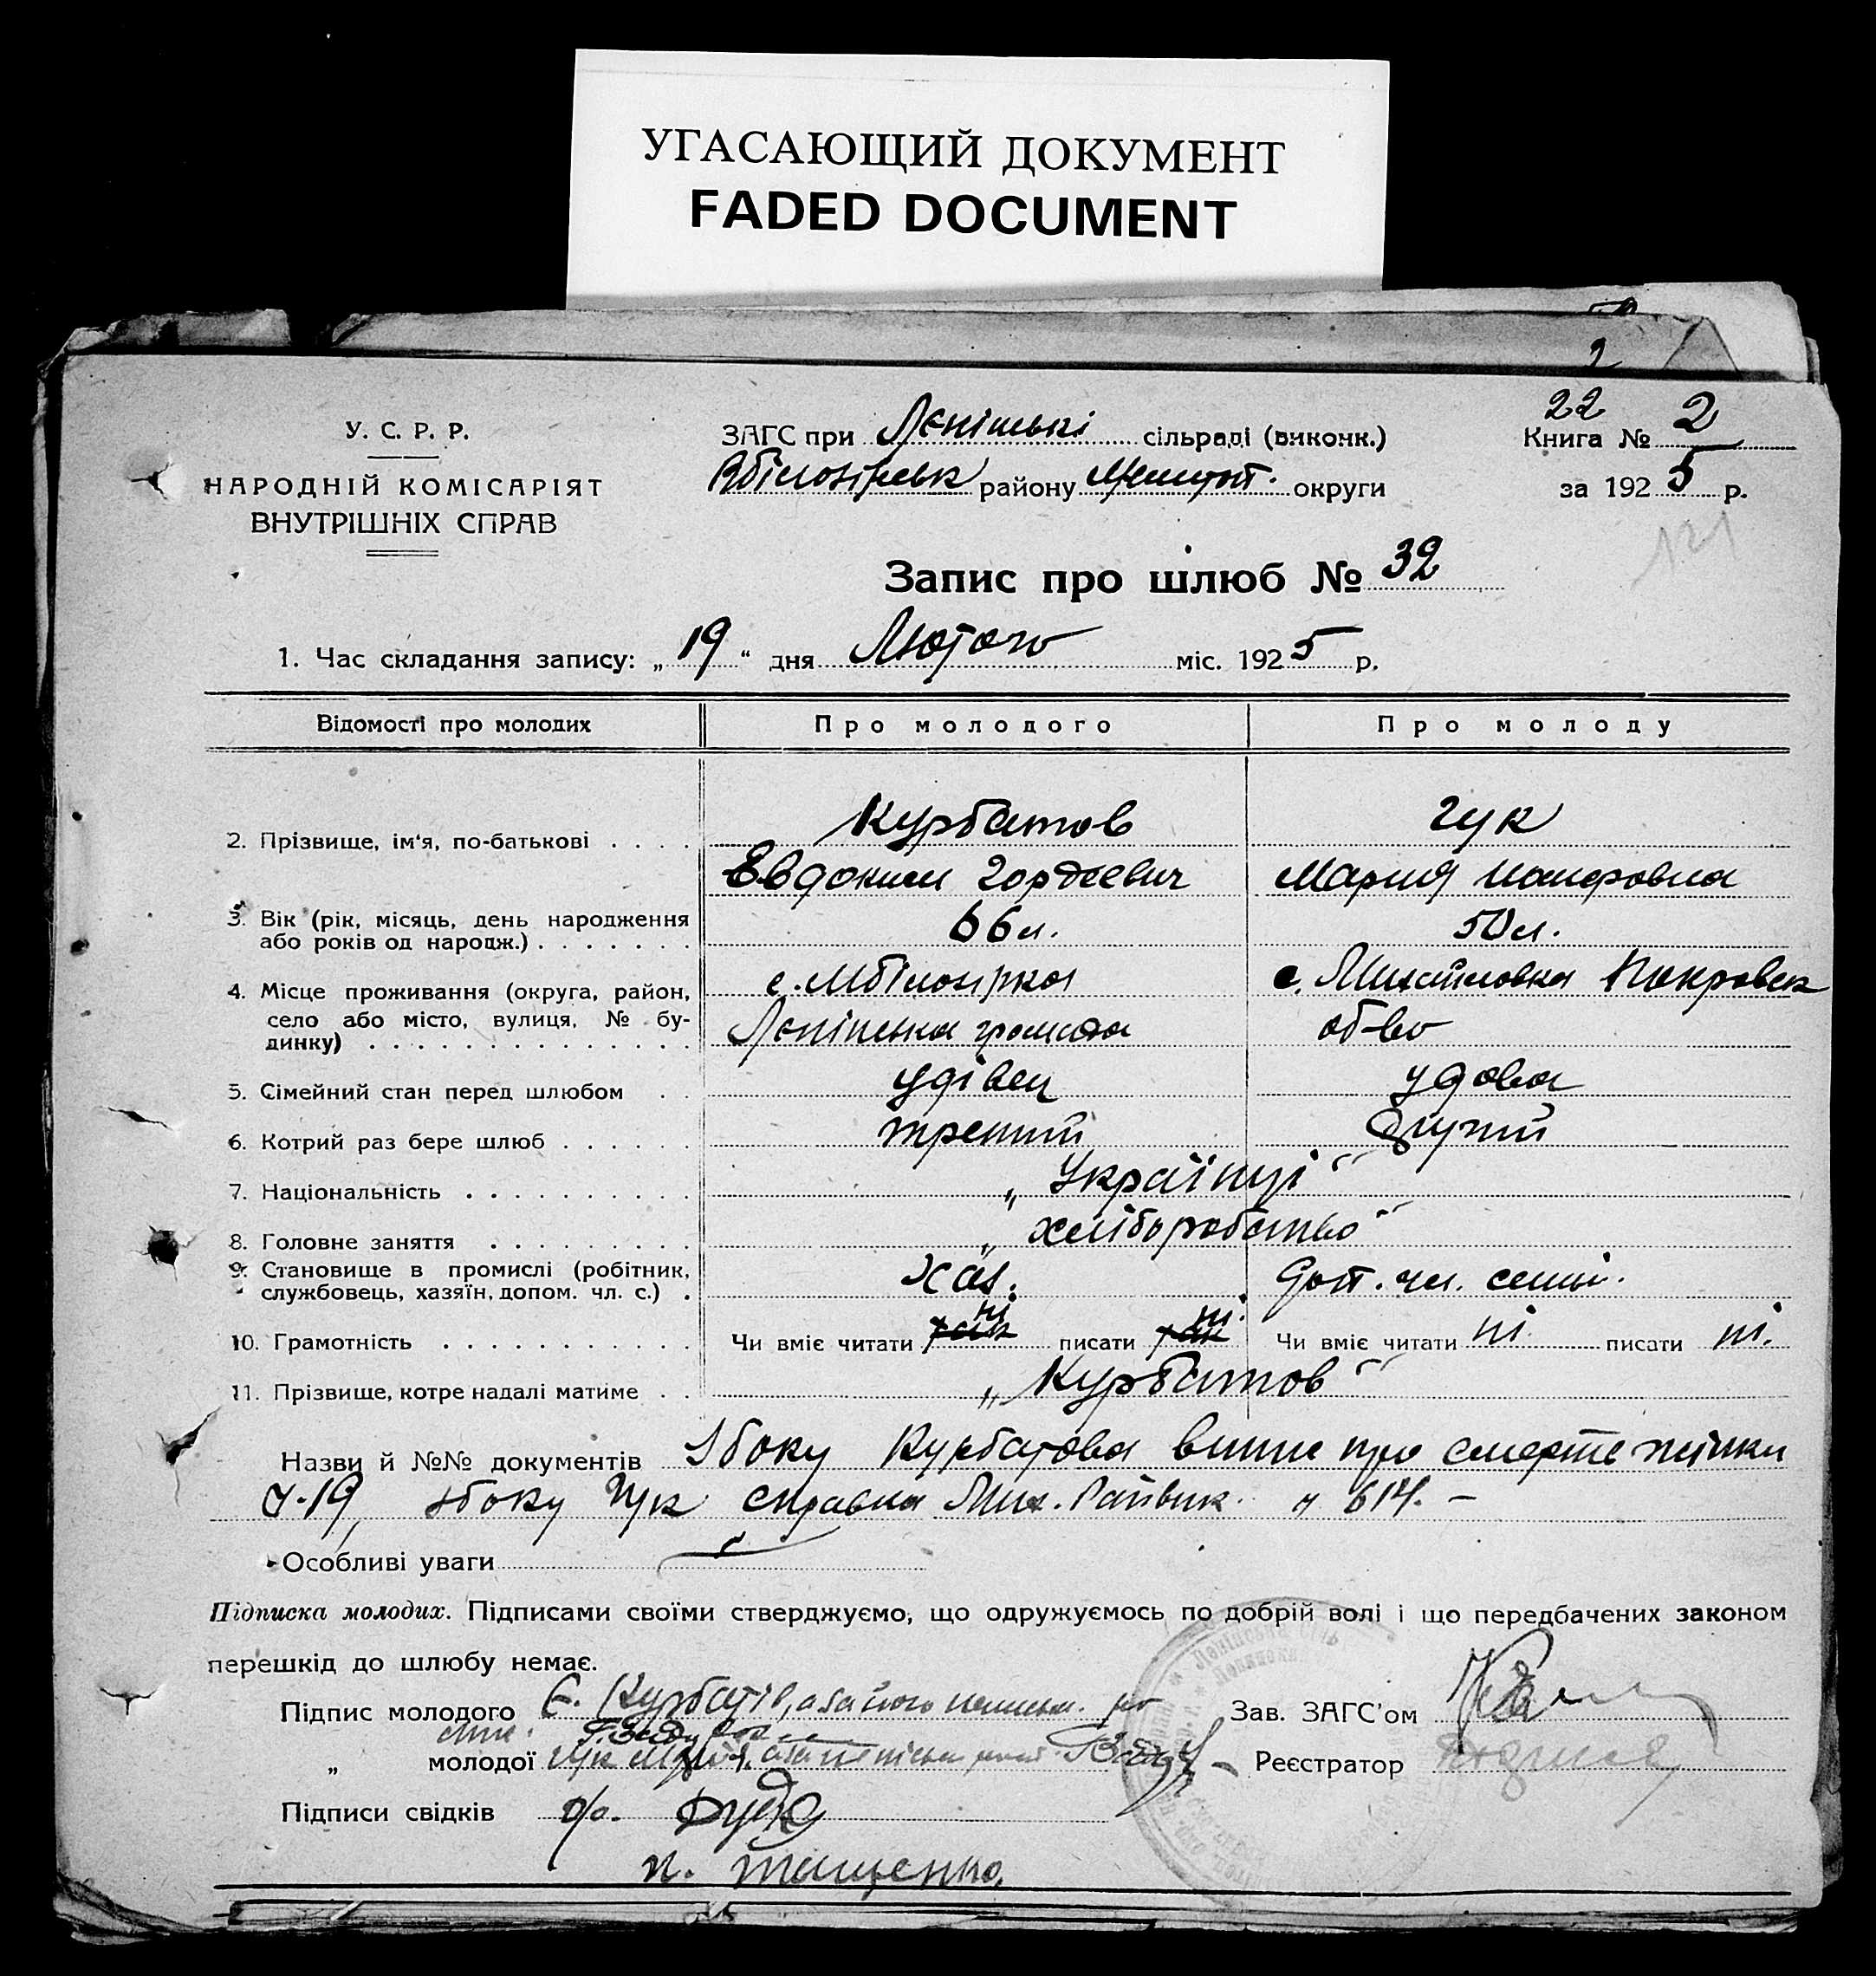 УГАСАЮЩИЙ ДОКУМЕНТ
FADED DOCUMENT
2
22
У. С. Р. Р.
НАРОДНІЙ КОМІСАРІЯТ
ВНУТРІШНІХ СПРАВ
ЗАГС при Ленінські сільраді (виконк.)
Вбілозірськ району Меліт. округи
Книга № 2
за 1925 р.
121
Запис про шлюб № 32
1. Час складання запису: „19“ дня Лютого міс. 1925 р.
Відомості про молодих Про молодого Про молоду
2. Прізвище, ім'я, по-батькові . . . . Курбатов Гук
Евдоким Гордеевич Мария
3. Вік (рік, місяць, день народження
або років од народж.) . . . . . . . 66 л. 50 л.
4. Місце проживання (округа, район,
село або місто, вулиця, № бу-
динку) . . . . . . . . . . . . . . .
с. Мбілозірка с. Михайловка Покровск
Ленінська громада об-во
5. Сімейний стан перед шлюбом . . удівец удова
6. Котрий раз бере шлюб . . . . . . третий другий
7. Національність . . . . . . . . . . „Українці“
8. Головне заняття . . . . . . . . . „хліборобство“
9. Становище в промислі (робітник,
службовець, хазяїн, допом. чл. с.) . хаз. доп. чл. семьі.
10. Грамотність . . . . . . . . . . . Чи вміє читати так ні писати так ні. Чи вміє читати ні. писати ні.
11. Прізвище, котре надалі матиме . . „Курбатов“
Назви й №№ документів Збоку Курбатова випис про смерть жінки
ч-19, збоку Гук справка Мих. Райвик. ч 614. –
Особливі уваги
Підписка молодих. Підписами своїми стверджуємо, що одружуємось по добрій волі і що передбачених законом
перешкід до шлюбу немає.
Підпис молодого Є. Курбатів, а за його
„ молодої Гук
Підписи свідків
п. Тищенко
Зав. ЗАГС'ом
Реєстратор